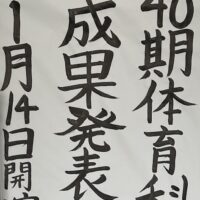 40期体育科
成果発表
1月14日開